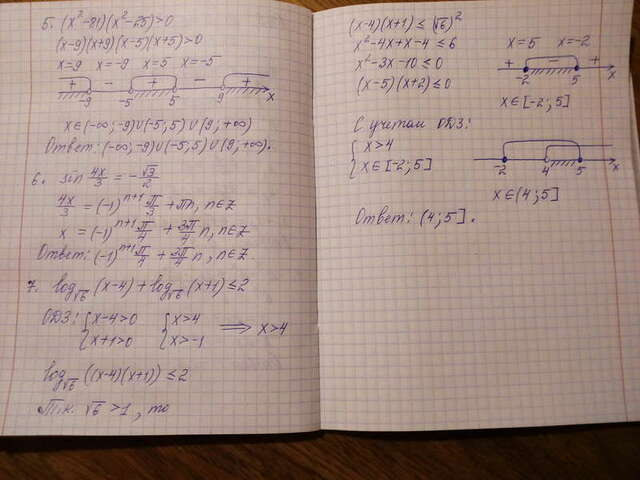 5. (x²-81)(x²-25)>0
(x-9)(x+9)(x-5)(x+5)>0
x=9 x=-9 x=5 x=-5
+ - + - +
-9 -5 5 9 x
x∈(-∞;-9)∪(-5;5)∪(9;+∞)
Ответ: (-∞;-9)∪(-5;5)∪(9;+∞).
6. sin 4x/3 = -√3/2
4x/3 = (-1)ⁿ⁺¹ π/3 + πn, n∈Z
x = (-1)ⁿ⁺¹ π/4 + 3π/4 n, n∈Z
Ответ: (-1)ⁿ⁺¹ π/4 + 3π/4 n, n∈Z.
7. log√6 (x-4) + log√6 (x+1) ≤ 2
ОДЗ: { x-4>0 { x>4 ⟹ x>4
x+1>0 x>-1
log√6 ((x-4)(x+1)) ≤ 2
Т.к. √6 >1, то
(x-4)(x+1) ≤ (√6)²
x²-4x+x-4 ≤ 6
x²-3x-10 ≤ 0
(x-5)(x+2) ≤ 0
x=5 x=-2
+ - +
-2 5 x
x∈[-2;5]
С учетом ОДЗ:
{ x>4
x∈[-2;5]
-2 4 5 x
x∈(4;5]
Ответ: (4;5].